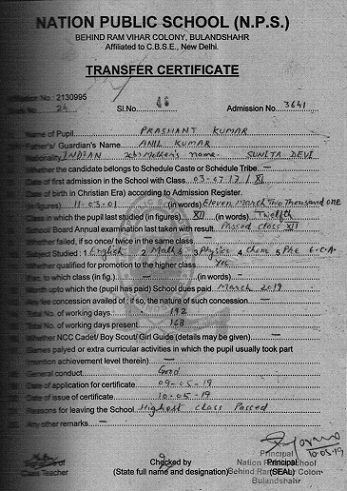 NATION PUBLIC SCHOOL (N.P.S.)
BEHIND RAM VIHAR COLONY, BULANDSHAHR
Affiliated to C.B.S.E., New Delhi.
TRANSFER CERTIFICATE
No.: 2130995
No. 24 Sl.No. Admission No. 3641
Name of Pupil PRASHANT KUMAR
Father's/ Guardian's Name ANIL KUMAR
Nationality INDIAN Mother's name- SUNITA DEVI
Whether the candidate belongs to Schedule Caste or Schedule Tribe –
Date of first admission in the School with Class. 03-07-17 / XI
Date of birth in Christian Era) according to Admission Register.
(in figures) 11-03-01 (in words) Eleven March Two Thousand one
Class in which the pupil last studied (in figures) XII (in words) Twelfth
School Board Annual examination last taken with result. Passed class XII
Whether failed, if so once/ twice in the same class –
Studied : 1 English 2 Math 3 Physics 4 Chem 5 Phe 6 C.A.
Whether qualified for promotion to the higher class Yes
to which class (in fig.) – (in words) –
Month upto which the (pupil has paid) School dues paid. March 2019
Any fee concession availed of : if so, the nature of such concession –
Total No. of working days 192
Total No. of working days present 168
Whether NCC Cadet/ Boy Scout/ Girl Guide (details may be given) –
Games palyed or extra curricular activities in which the pupil usually took part
(mention achievement level therein) –
General conduct Good
Date of application for certificate 09-05-19
Date of issue of certificate 10-05-19
Reasons for leaving the School Highest Class Passed
Any other remarks –
10-05-19
Principal
Checked by Principal
Teacher (State full name and designation) (SEAL)
Bulandshahr